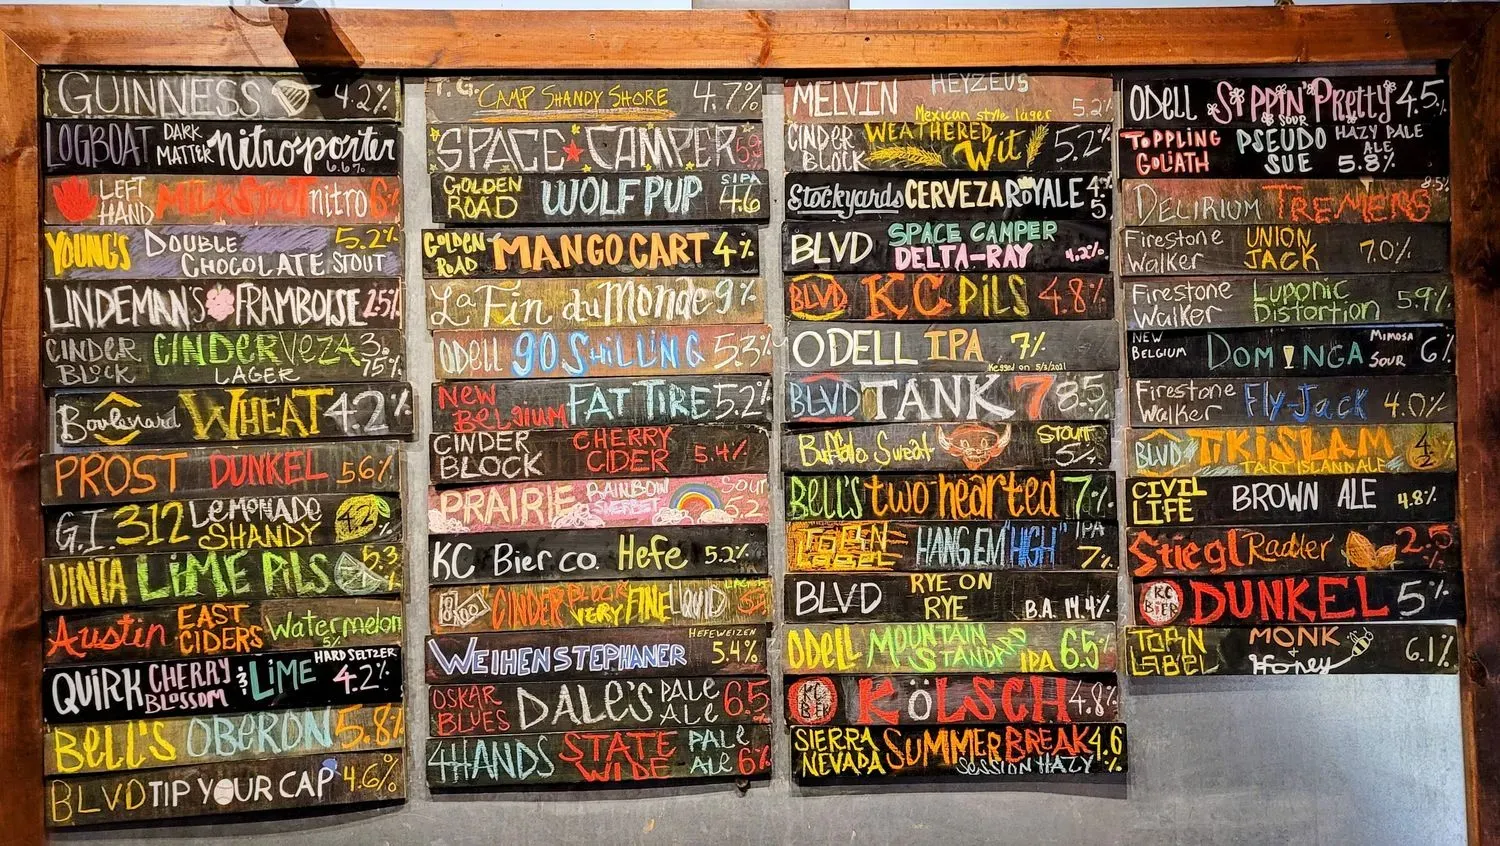 GUINNESS 4.2%
LOGBOAT DARK MATTER nitro-porter 6.6%
LEFT HAND MILK STOUT nitro 6%
YOUNG'S DOUBLE CHOCOLATE STOUT 5.2%
LINDEMAN'S FRAMBOISE 2.5%
CINDER BLOCK CINDERVEZA LAGER 3.75%
Boulevard WHEAT 4.2%
PROST DUNKEL 5.6%
G.I. 312 LEMONADE SHANDY 4.2
UINTA LIME PILS 5.3%
Austin EAST CIDERS Watermelon 5%
QUIRK CHERRY BLOSSOM & LIME HARD SELTZER 4.2%
BELL'S OBERON 5.8%
BLVD TIP YOUR CAP 4.6%
T.G. CAMP SHANDY SHORE 4.7%
SPACE CAMPER 5.9
GOLDEN ROAD WOLF PUP SIPA 4.6
GOLDEN ROAD MANGO CART 4%
La Fin du Monde 9%
ODELL 90 SHILLING 5.3%
NEW BELGIUM FAT TIRE 5.2%
CINDER BLOCK CHERRY CIDER 5.4%
PRAIRIE RAINBOW SHERBET SOUR 5.2
KC Bier co. Hefe 5.2%
CINDER BLOCK VERY FINE LIQUID
WEIHENSTEPHANER HEFEWEIZEN 5.4%
OSKAR BLUES DALE'S PALE ALE 6.5%
4HANDS STATE WIDE PALE ALE 6%
MELVIN HEYZEUS Mexican style lager 5.2%
CINDER BLOCK WEATHERED Wit 5.2%
Stockyards CERVEZA ROYALE 4.5%
BLVD SPACE CAMPER DELTA-RAY 4.2%
BLVD KC PILS 4.8%
ODELL IPA 7% Kegged on 5/3/2021
BLVD TANK 7 8.5%
Buffalo Sweat STOUT 5%
BELL'S two hearted 7%
TORN LABEL HANG EM "HIGH" IPA 7%
BLVD RYE ON RYE B.A. 14.4%
ODELL MOUNTAIN STANDARD IPA 6.5%
KC BIER KÖLSCH 4.8%
SIERRA NEVADA SUMMER BREAK SESSION HAZY 4.6%
ODELL SIPPIN' Pretty SOUR 4.5%
TOPPLING GOLIATH PSEUDO SUE HAZY PALE ALE 5.8%
DELIRIUM TREMENS 8.5%
Firestone Walker UNION JACK 7.0%
Firestone Walker Luponic Distortion 5.9%
NEW BELGIUM DOMINGA Mimosa SOUR 6%
Firestone Walker Fly-Jack 4.0%
BLVD TIKI SLAM TART ISLAND ALE 4.2
CIVIL LIFE BROWN ALE 4.8%
Stiegl Radler 2.5%
KC BIER DUNKEL 5%
TORN LABEL MONK & Honey 6.1%